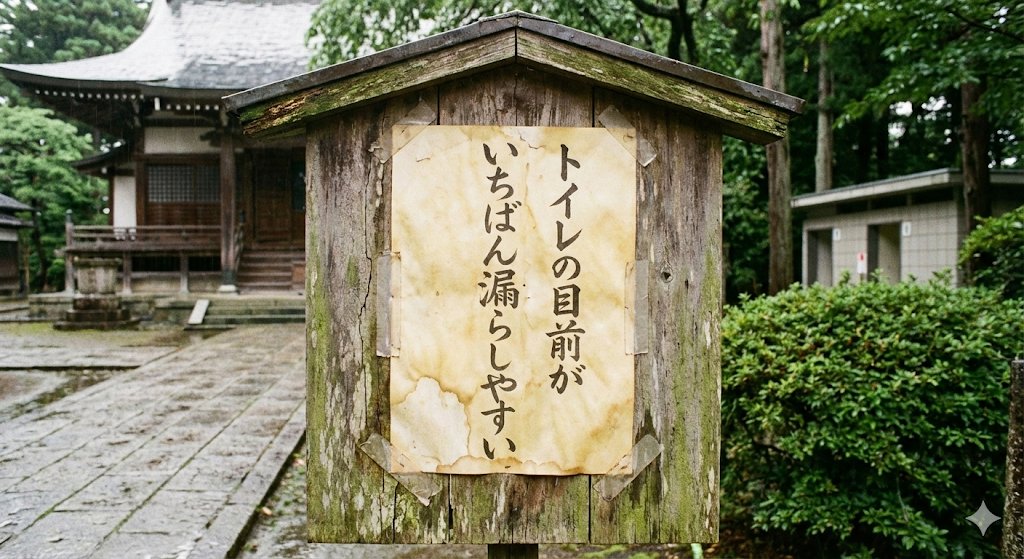 トイレの目前が
いちばん漏らしやすい